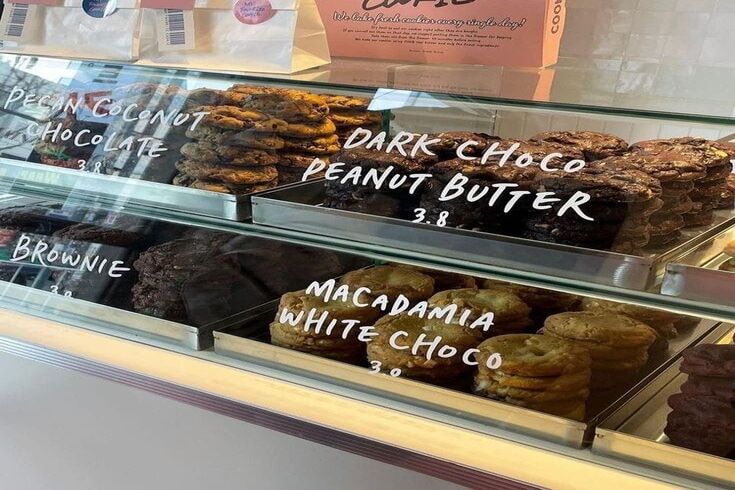 We bake fresh cookies every single day!
PECAN COCONUT
CHOCOLATE
3.8
DARK CHOCO
PEANUT BUTTER
3.8
BROWNIE
3.8
MACADAMIA
WHITE CHOCO
3.8